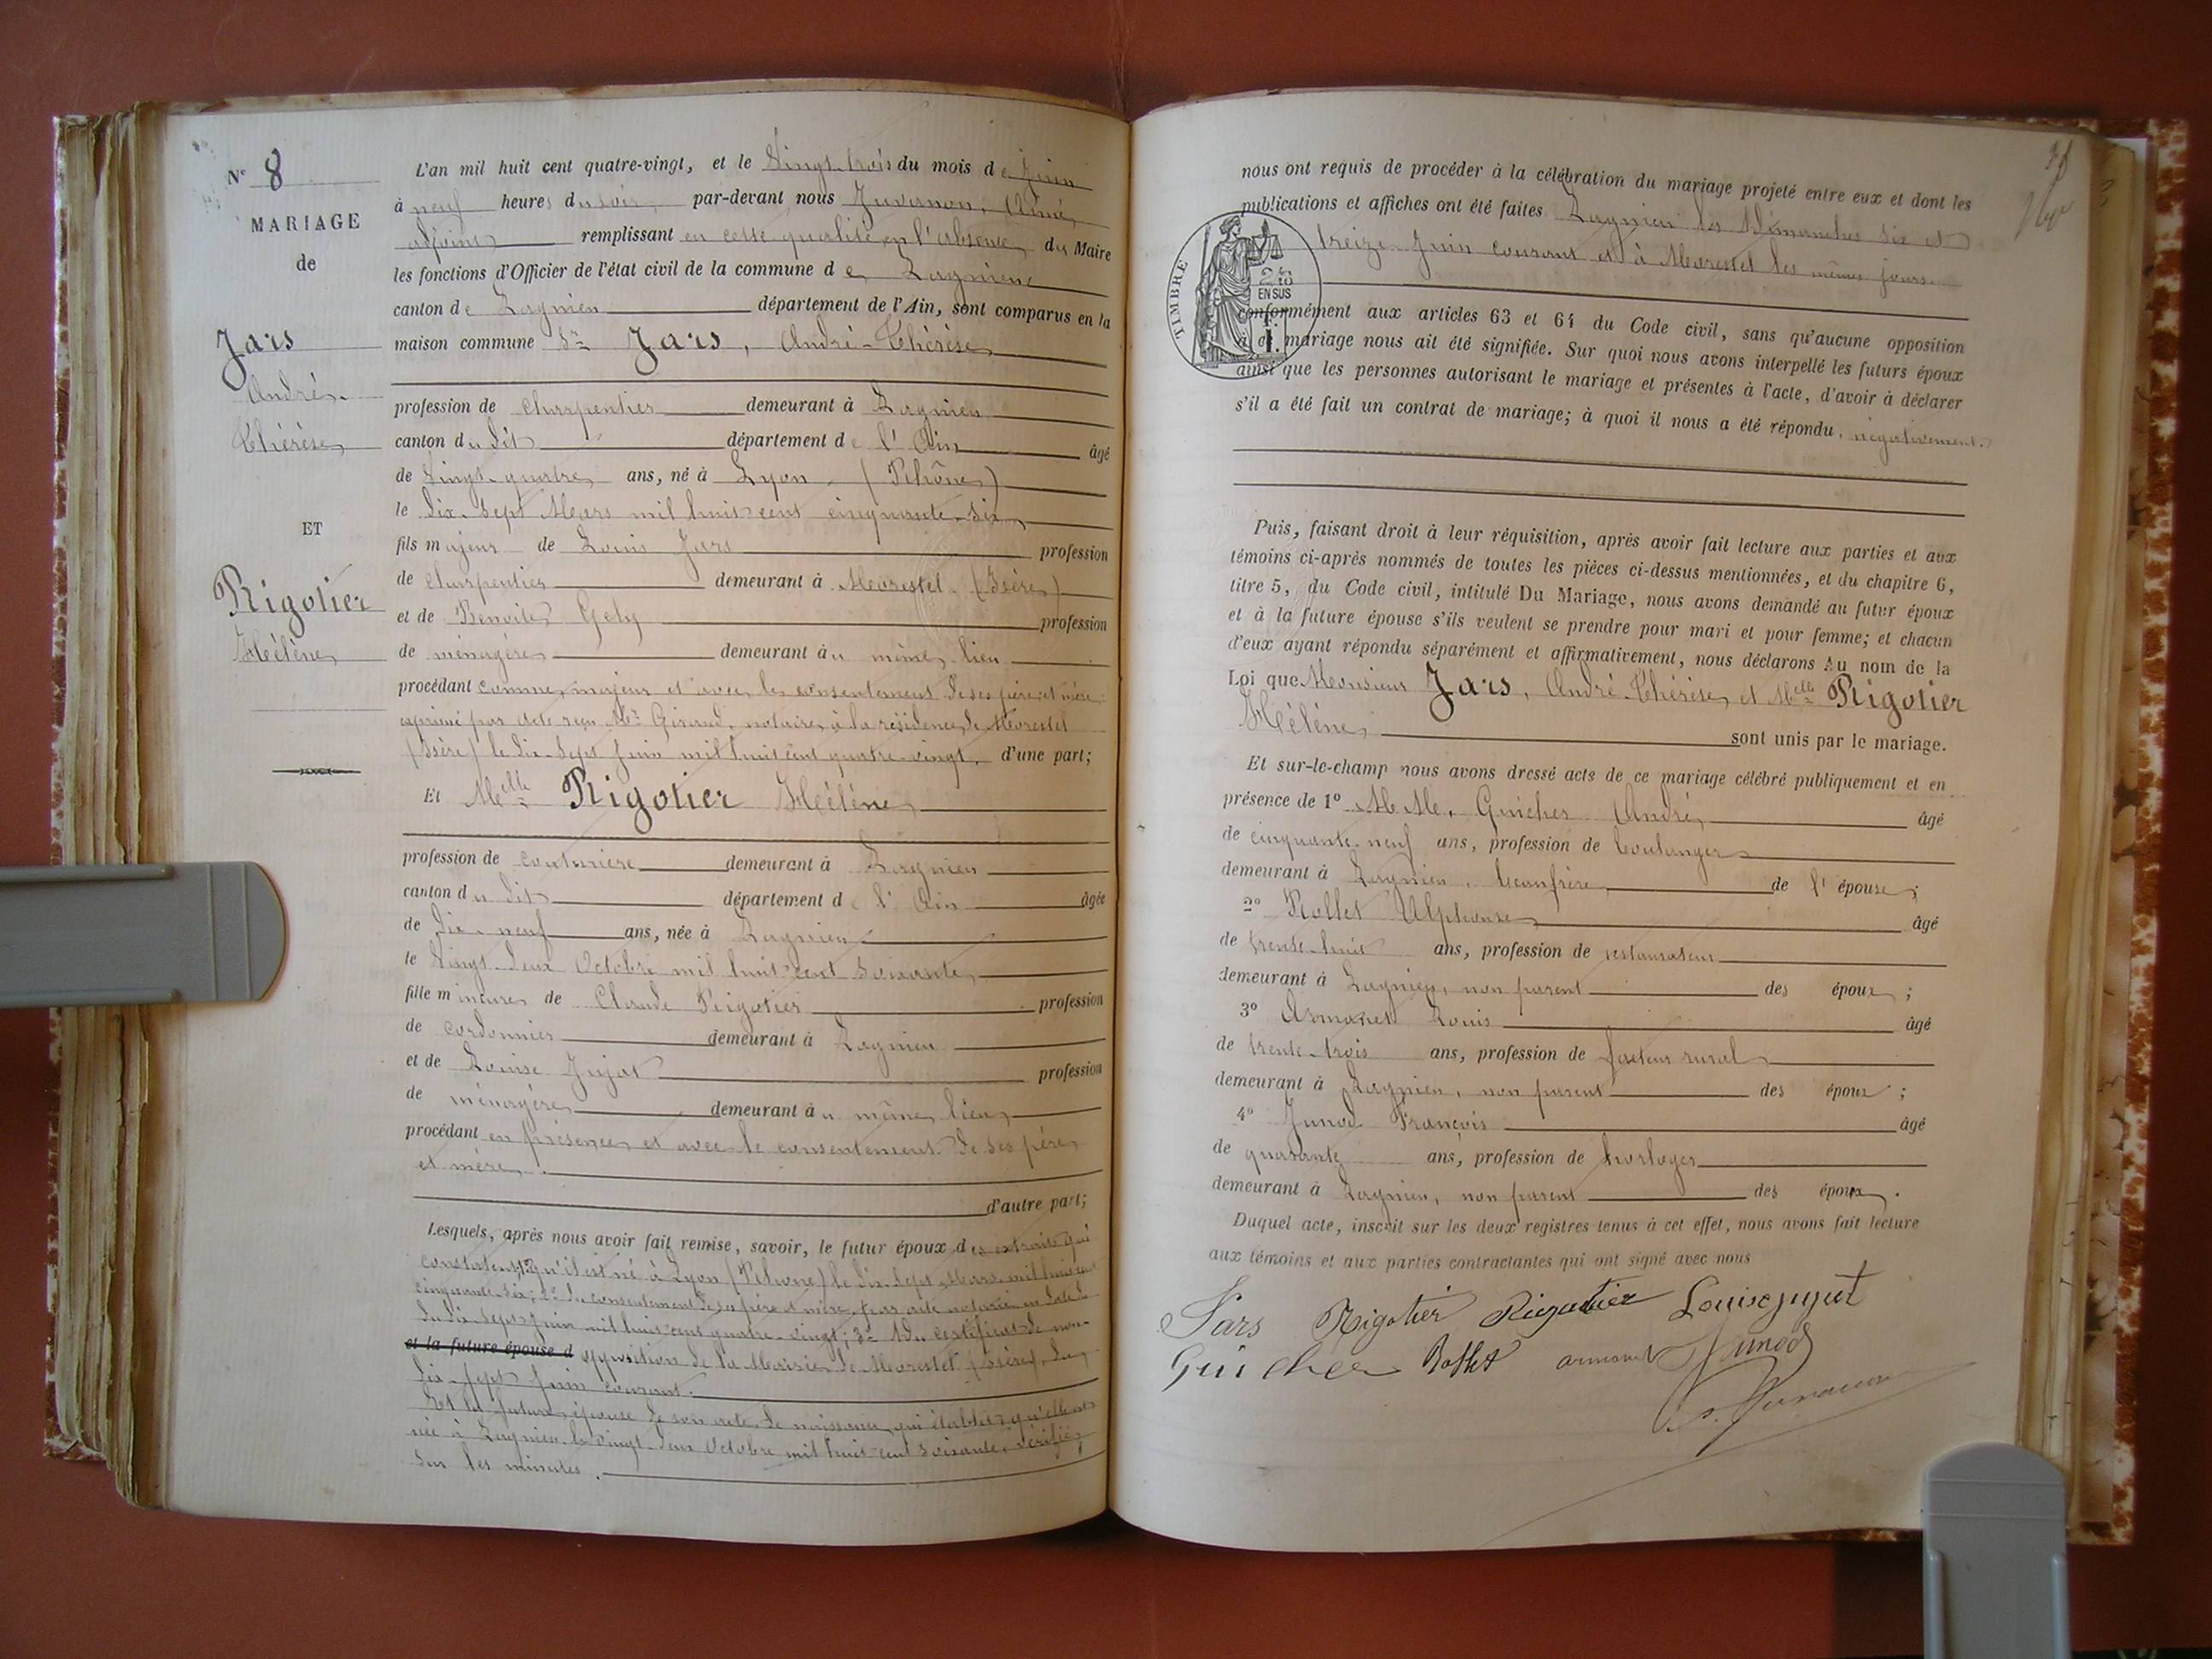 Nº 8
MARIAGE
de
Jars
André-
Thérèse
ET
Rigotier
Hélène
L'an mil huit cent quatre-vingt, et le Vingt-trois du mois de Juin
à neuf heures du soir par-devant nous Juvanon, Aimé,
adjoint remplissant en cette qualité en l'absence du Maire
les fonctions d'Officier de l'état civil de la commune de Lagnieu
canton de Lagnieu département de l'Ain, sont comparus en la
maison commune Sr Jars, André-Thérèse
profession de charpentier demeurant à Lagnieu
canton du dit département de l'Ain âgé
de Vingt-quatre ans, né à Lyon (Rhône)
le dix-sept Mars mil huit-cent cinquante-six
fils majeur de Louis Jars profession
de charpentier demeurant à Morestel (Isère)
et de Benoite Gely profession
de ménagère demeurant au même lieu
procédant comme majeur et avec le consentement de ses père et mère
exprimé par acte reçu Me Giraud, notaire à la résidence de Morestel
(Isère) le dix-sept Juin mil huit cent quatre-vingt, d'une part;
Et Melle Rigotier Hélène
profession de couturière demeurant à Lagnieu
canton du dit département de l'Ain âgée
de dix-neuf ans, née à Lagnieu
le Vingt-deux Octobre mil huit-cent soixante
fille mineure de Claude Rigotier profession
de cordonnier demeurant à Lagnieu
et de Louise Jujat profession
de ménagère demeurant au même lieu
procédant en présence et avec le consentement de ses père
et mère.
d'autre part;
Lesquels, après nous avoir fait remise, savoir, le futur époux des extraits qui
constatent, 1º qu'il est né à Lyon (Rhône) le dix-sept Mars mil huit cent
cinquante-six; 2º du consentement de ses père et mère, par acte notarié en date
du dix-sept Juin mil huit cent quatre-vingt; 3º du certificat de non-
et la future épouse d opposition de la Mairie de Morestel (Isère), du
dix-sept Juin courant.
Et la future épouse de son acte de naissance qui établit qu'elle est
née à Lagnieu le vingt-deux Octobre mil huit-cent soixante, vérifié
sur les minutes.
nous ont requis de procéder à la célébration du mariage projeté entre eux et dont les
publications et affiches ont été faites Lagnieu les Dimanches six et
treize Juin courant et à Morestel les mêmes jours.
TIMBRE
EN SUS
conformément aux articles 63 et 64 du Code civil, sans qu'aucune opposition
mariage nous ait été signifiée. Sur quoi nous avons interpellé les futurs époux
ainsi que les personnes autorisant le mariage et présentes à l'acte, d'avoir à déclarer
s'il a été fait un contrat de mariage; à quoi il nous a été répondu négativement.
Puis, faisant droit à leur réquisition, après avoir fait lecture aux parties et aux
témoins ci-après nommés de toutes les pièces ci-dessus mentionnées, et du chapitre 6,
titre 5, du Code civil, intitulé Du Mariage, nous avons demandé au futur époux
et à la future épouse s'ils veulent se prendre pour mari et pour femme; et chacun
d'eux ayant répondu séparément et affirmativement, nous déclarons Au nom de la
Loi que Monsieur Jars, André-Thérèse et Melle Rigotier
Hélène sont unis par le mariage.
Et sur-le-champ nous avons dressé acte de ce mariage célébré publiquement et en
présence de 1º M M. Guicher André, âgé
de cinquante-neuf ans, profession de boulanger
demeurant à Lagnieu, beaufrère de l'épouse;
2º Rollet Alphonse âgé
de trente-huit ans, profession de restaurateur
demeurant à Lagnieu, non parent des époux;
3º Armanet Louis âgé
de trente-trois ans, profession de facteur rural
demeurant à Lagnieu, non parent des époux;
4º Junod François âgé
de quarante ans, profession de horloger
demeurant à Lagnieu, non parent des époux.
Duquel acte, inscrit sur les deux registres tenus à cet effet, nous avons fait lecture
aux témoins et aux parties contractantes qui ont signé avec nous
Jars Rigotier Rigotier Louise jujat
Guicher Rollet armanet Junod